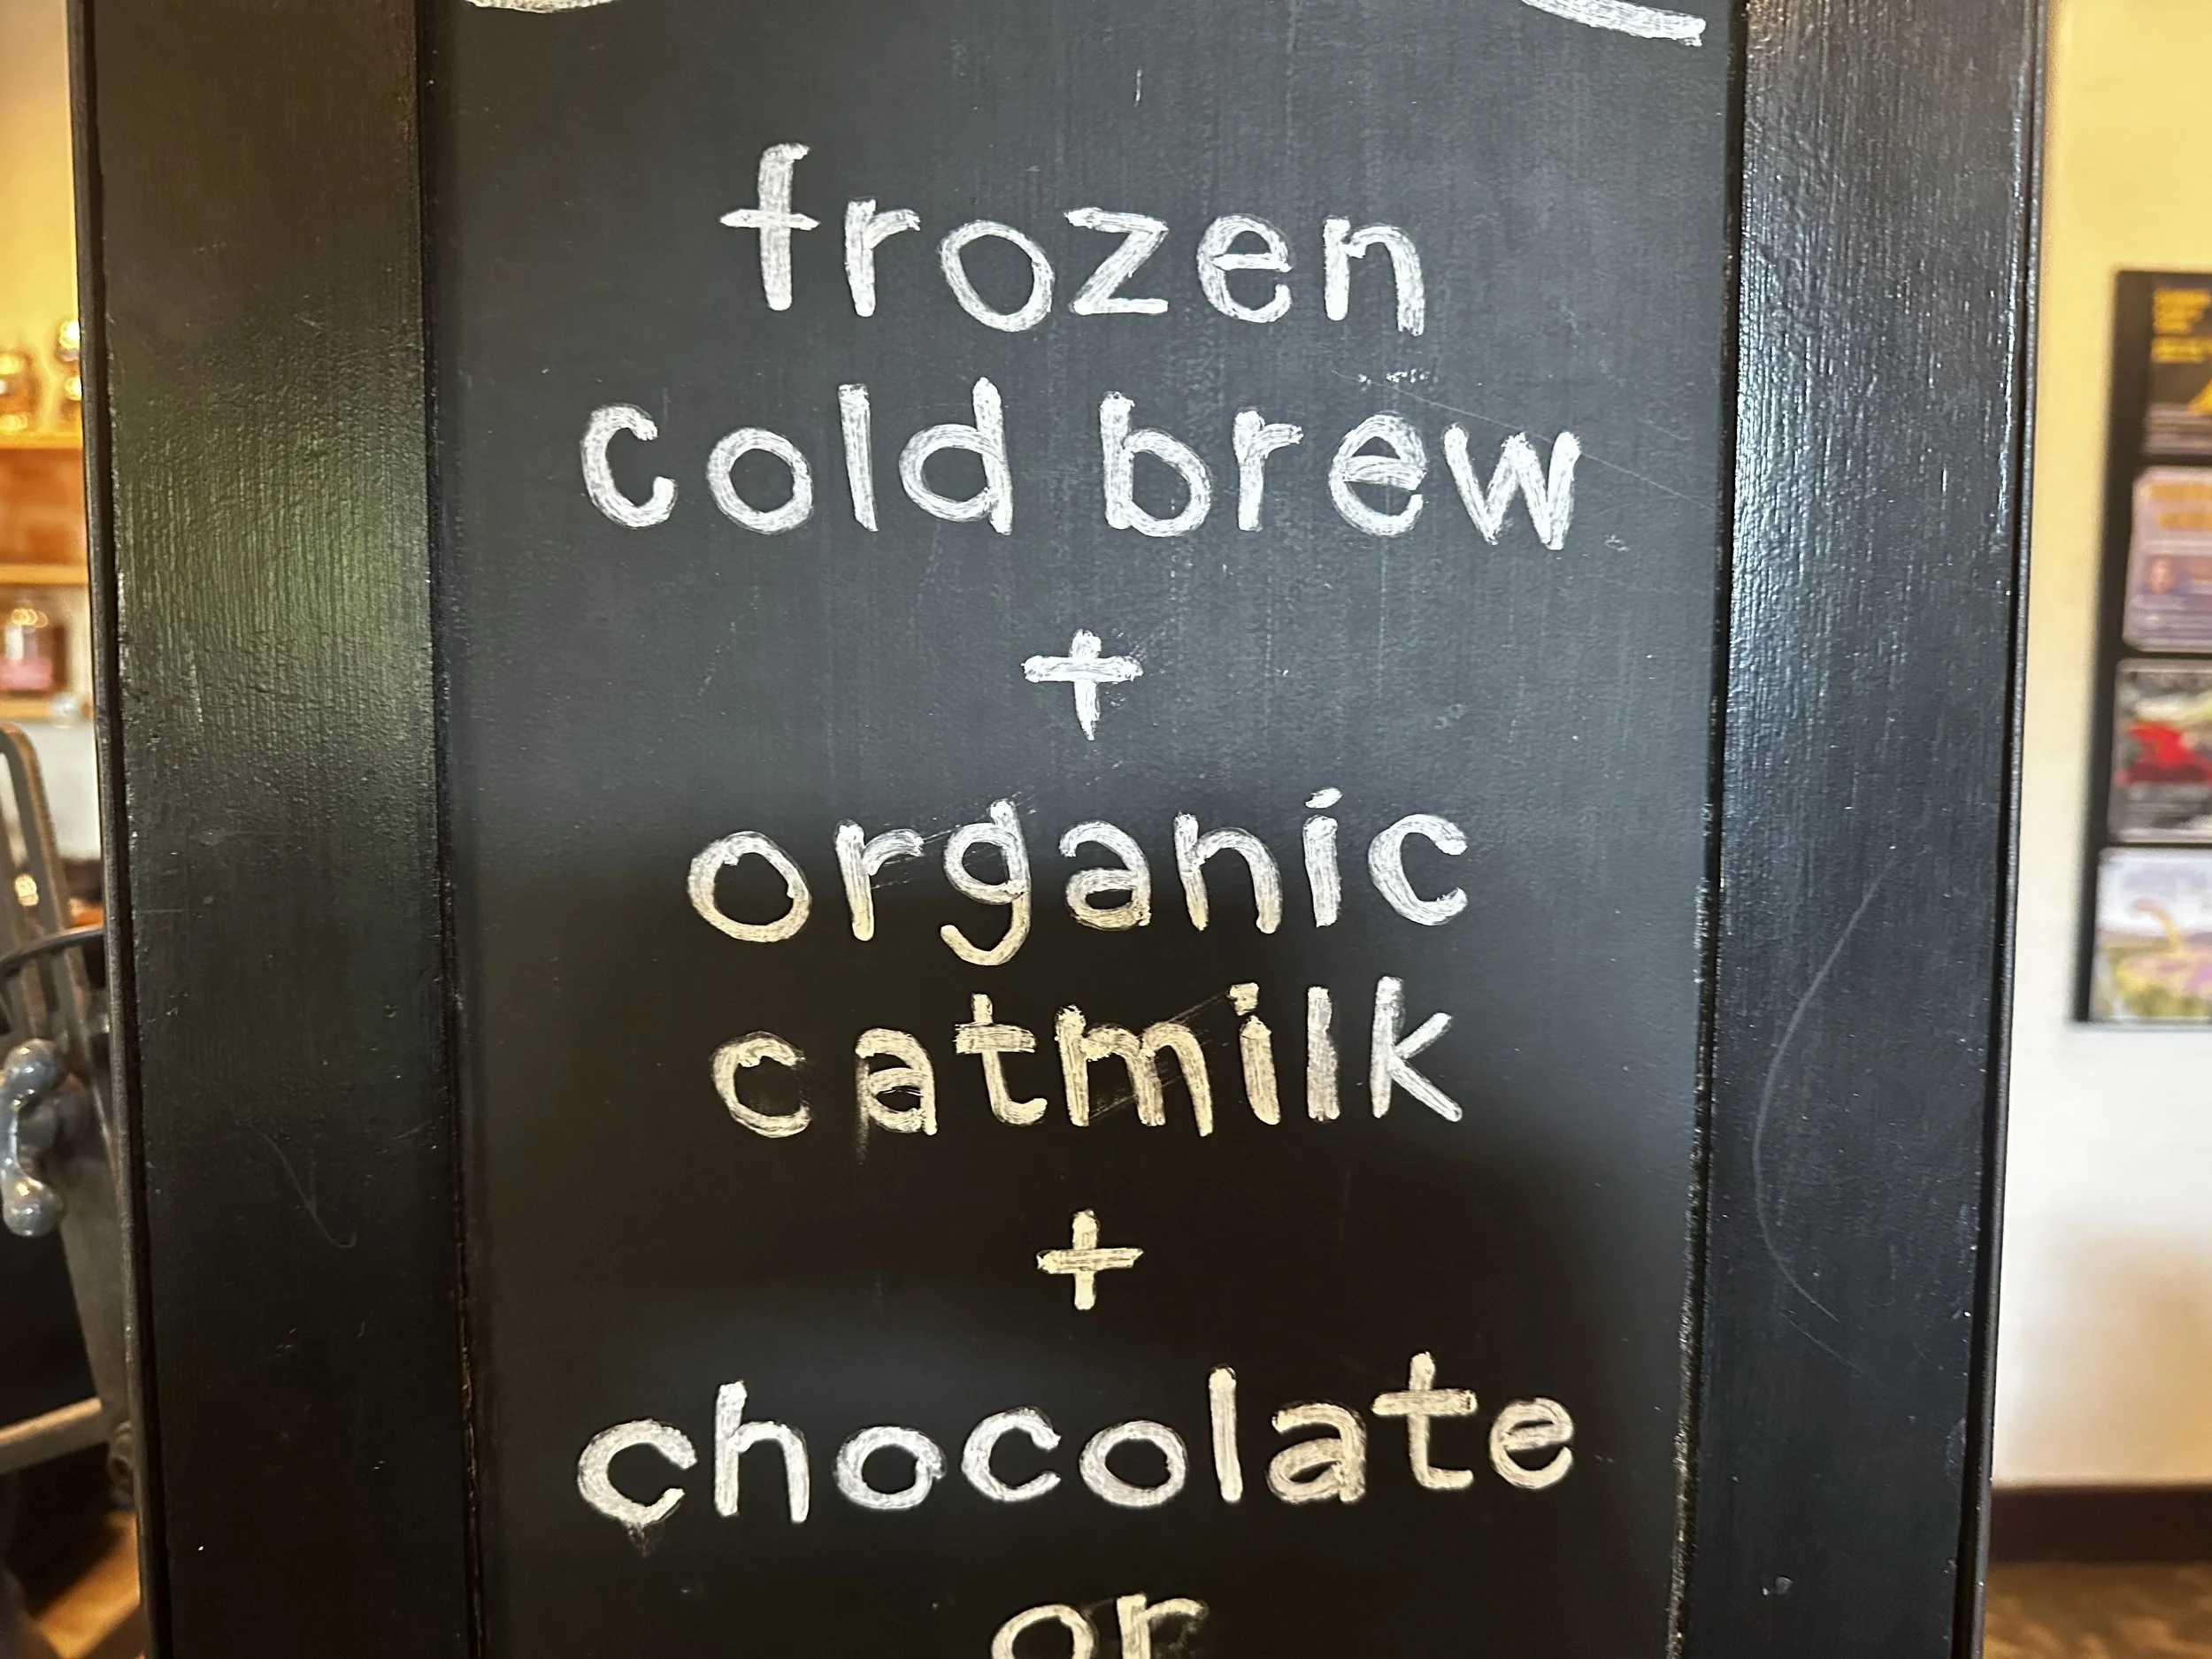 frozen
cold brew
+
organic
catmilk
+
chocolate
or